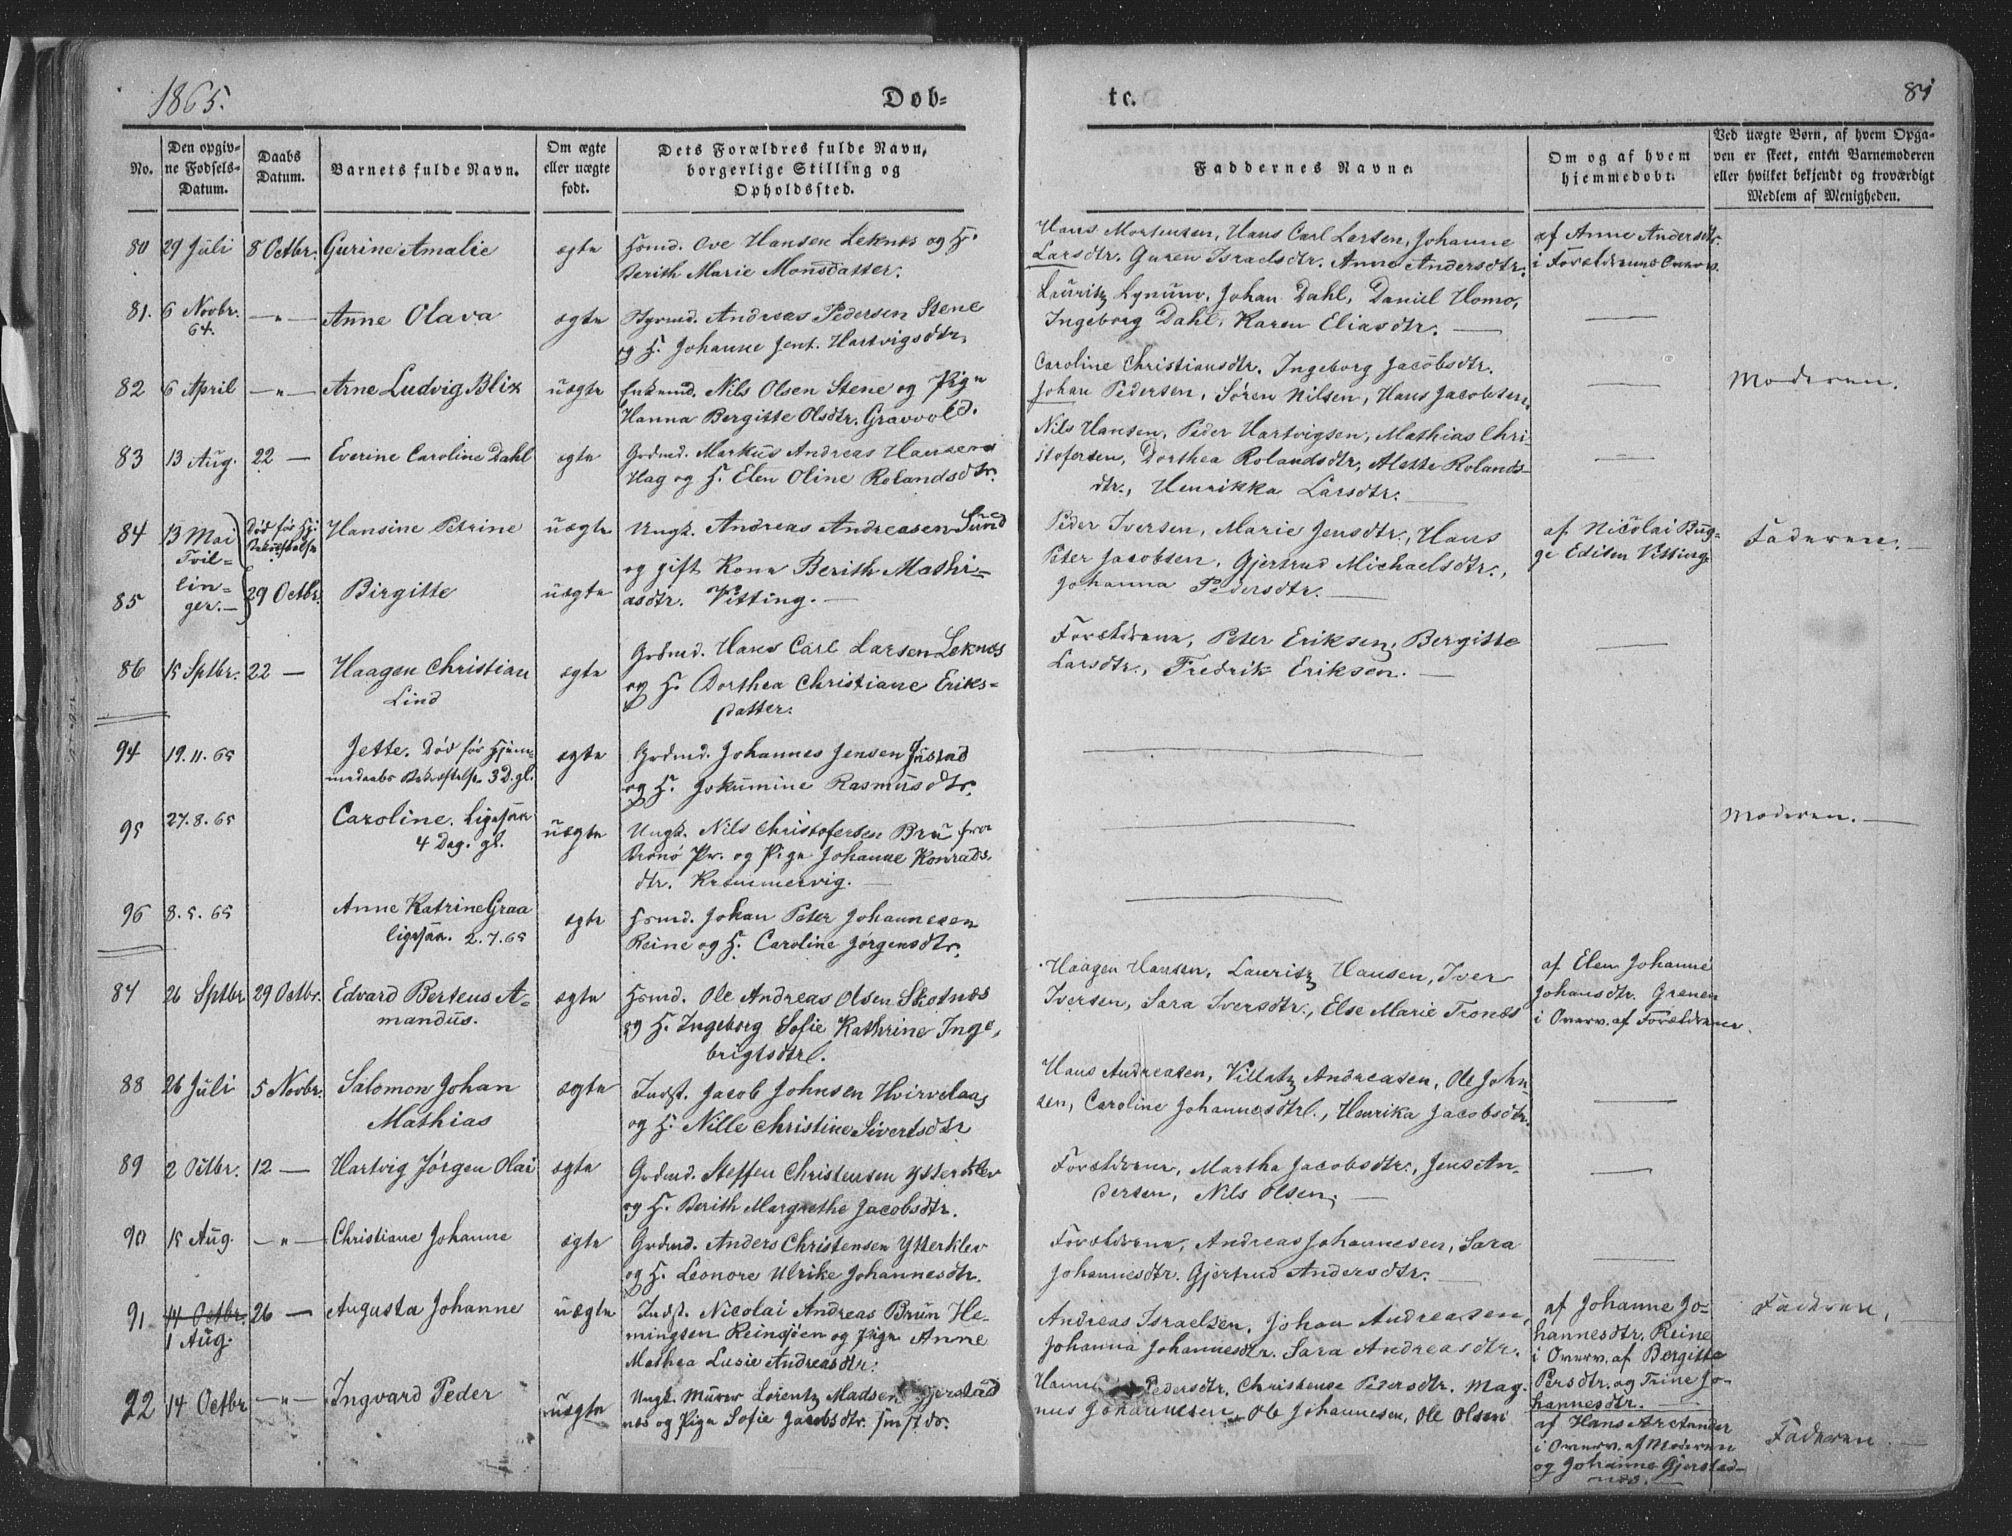 1865.
Døb-
te.
81
No.
Den opgiv-
ne Fødsels-
Datum.
Daabs
Datum.
Barnets fulde Navn.
Om ægte
eller uægte
født.
Dets Forældres fulde Navn,
borgerlige Stilling og
Opholdssted.
Faddernes Navne.
Om og af hvem
hjemmedøbt.
Ved uægte Børn, af hvem Opga-
ven er skeet, enten Barnemoderen
eller hvilket bekjendt og troværdigt
Medlem af Menigheden.
80 29 Juli 8 Octbr. Gurine Amalie ægte Hsmd. Ove Hansen Leknes og H.
Berith Marie Monsdatter.
Hans Mortensen, Hans Carl Larsen, Johanne
Larsdtr. Guren Israelsdtr. Anne Andersdtr.
af Anne Andersdtr.
i Forældrenes Overv.
81. 6 Novbr. 64. —„— Anne Olava ægte Andreas Pedersen Stene
og H. Johanne Jent. Hartvigsdtr.
Lauritz Lynum, Johan Dahl, Daniel Homo,
Ingeborg Dahl, Karen Eliasdtr. —
82 6 April —„— Arne Ludvig Blix uægte Enkemd. Nils Olsen Stene og Pige
Hanna Bergitte Olsdtr. Gravvold.
Caroline Christiansdtr. Ingeborg Jacobsdtr.
Johan Pedersen, Søren Nilsen, Hans Jacobsen.
Moderen.
83 13 Aug. 22 — Everine Caroline Dahl ægte Grdmd. Markus Andreas Hansen
Hag og H. Elen Oline Rolandsdtr.
Nils Hansen, Peder Hartvigsen, Mathias Chri
stofersen, Dorthea Rolandsdtr, Alette Rolands-
dtr., Henrikka Larsdtr.
84 13 Mai Død før Hj. Bekræftelse Hansine Petrine uægte Ungk. Andreas Andreasen Sund
Tvil-
lin-
ger.—
og gift Kone Berith Mathi-
85 29 Octbr. Birgitte uægte asdtr. Vitting. —
Peder Iversen, Marie Jensdtr., Hans
Peter Jacobsen, Gjertrud Michaelsdtr.,
Johanna Pedersdtr. —
af Nicolai Bug-
ge Vitting
Faderen. —
86 15 Sptbr. 22 — Haagen Christian
Lind
ægte Grdmd. Hans Carl Larsen Leknes
og H. Dorthea Christiane Eriks-
datter.
Forældrene, Peter Eriksen, Bergitte
Larsdtr., Fredrik Eriksen. —
94 19.11.65 Jette. Død før Hjem-
medaabs Bekræftelse 3 D. gl.
ægte Grdmd. Johannes Jensen
og H. Jokumine Rasmusdtr.
95 27.8.65 Caroline.
4 Dag. gl.
uægte Ungk. Nils Christofersen Bru fra
Brønø Pr. og Pige Johanne Konrads-
dtr. Kremmervig. —
Moderen. —
96 8.5.65 Anne Katrine Graa
2.7.65
ægte Hsmd. Johan Peter Johannesen
Reine og H. Caroline Jørgensdtr.
87 26 Sptbr 29 Octbr. Edvard Berteus A-
mandus.
ægte Hsmd. Ole Andreas Olsen Skotnes
og H. Ingeborg Sofie Kathrine Inge-
brigtsdtr.
Haagen Hansen, Lauritz Hansen, Iver
Iversen, Sara Iversdtr., Else Marie Trones
af Elen Johanne
Johansdtr. Grenen
i Overv. af Forældrene.
88 26 Juli 5 Novbr. Salomon Johan
Mathias
ægte Indst. Jacob Johnsen Hvirvelaas
og H. Nille Christine Sivertsdtr
Hans Andreasen, Villatz Andreasen, Ole John-
sen, Caroline Johannesdtr., Henrika Jacobsdtr.
89 2 Octbr. 12 — Hartvig Jørgen Olai ægte Grdmd. Steffen Christensen Ytterklev
og H. Berith Margrethe Jacobsdtr.
Forældrene, Martha Jacobsdtr., Jens An-
dersen, Nils Olsen. —
90 15 Aug. —„— Christiane Johanne ægte Grdmd. Anders Christensen Ytterklev
og H. Leonore Ulrike Johannesdtr.
Forældrene, Andreas Johannesen, Sara
Johannesdtr. Gjertrud Andersdtr. —
91 14 Octbr. 1 Aug. 26 — Augusta Johanne uægte Indst. Nicolai Andreas Brun He-
mingsen Reinsjøen og Pige Anne
Mathea Lusie Andreasdtr.
Andreas Israelsen, Johan Andreasen,
Johanna Johannesdtr. Sara Andreasdtr.
af Johanne Jo-
hannesdtr. Reine
i Overv. af Bergitte
Persdtr. og Trine Jo-
hannesdtr. —
Faderen.
92 14 Octbr —„— Ingvard Peder uægte Ungk. Murer Lorentz Madsen Gjerstad
nes og Pige Sofie Jacobsdtr.
Pedersdtr. Christense Pedersdtr. Mag-
nus Johannesen, Ole Johannesen, Ole Olsen
af Hans
i Overv. af Moderen
og Johanne Gjerstad-
nes. —
Faderen —